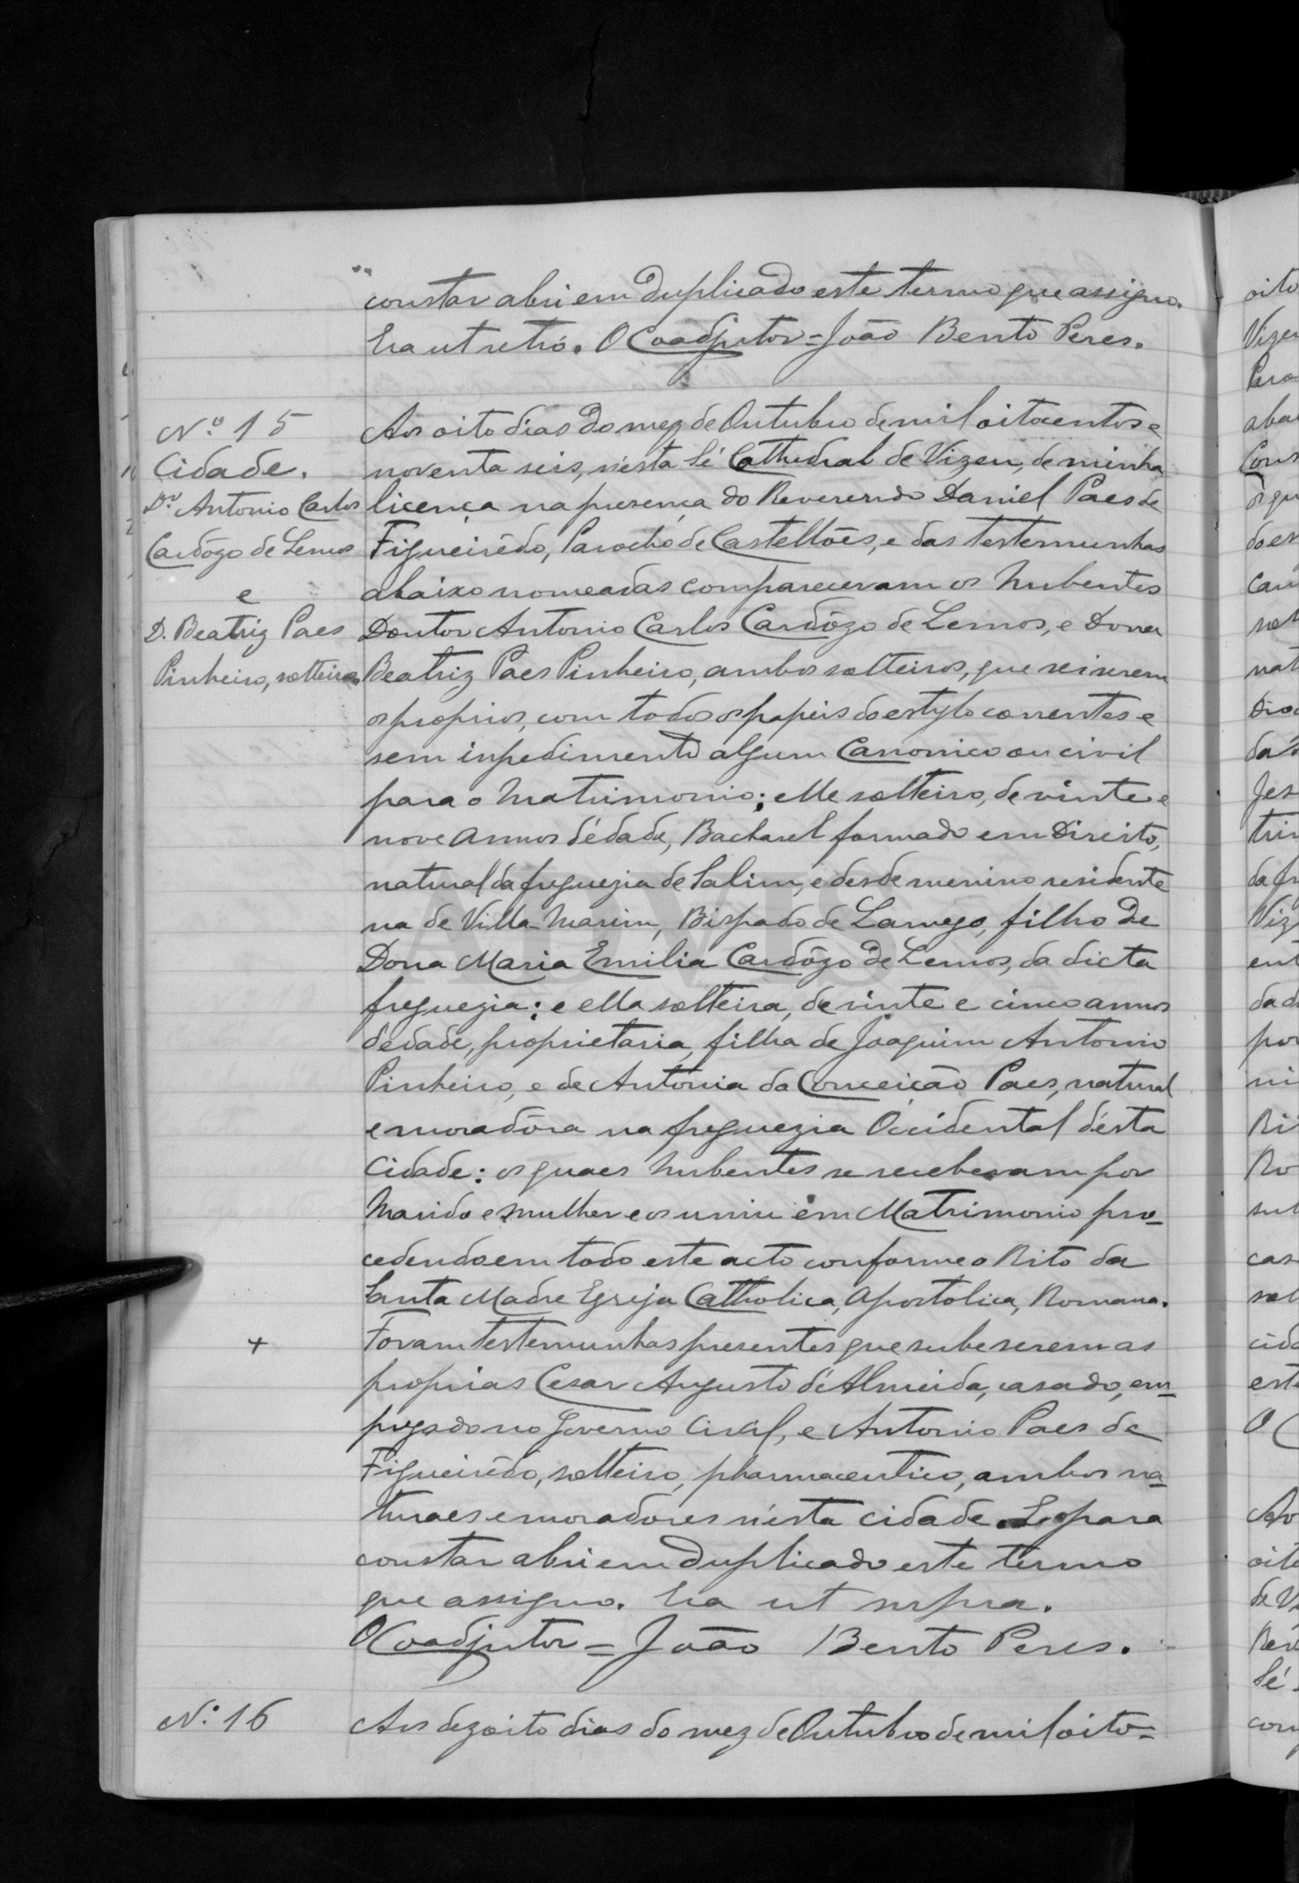 constar abri em duplicado este termo que assigno.
Era ut retró. O Coadjutor = João Bento Peres.
Nº 15
Cidade.
Dr Antonio Carlos
Cardôzo de Lemos
e
D. Beatriz Paes
Pinheiro, solteiros.
Aos oito dias do mez de Outubro de mil oitocentos e
noventa seis, n'esta Sé Cathedral de Vizeu, de minha
licença na presença do Reverendo Daniel Paes de
Figueirêdo, Parocho de Castellões, e das testemunhas
abaixo nomeadas compareceram os Nubentes
Doutor Antonio Carlos Cardôzo de Lemos, e Dona
Beatriz Paes Pinheiro, ambos solteiros, que sei serem
os proprios, com todos os papeis do estylo correntes e
sem inpedimento algum Canonico ou civil
para o Matrimonio; elle solteiro, de vinte e
nove annos d'édade, Bacharel formado em Direito,
natural da freguezia de Salim, e desde menino residente
na de Villa-Marim, Bispado de Lamego, filho de
Dona Maria Emilia Cardôzo de Lemos, da dicta
freguezia: e ella solteira, de vinte e cinco annos
d'edade, proprietaria, filha de Joaquim Antonio
Pinheiro, e de Antónia da Conceição Paes, natural
e moradôra na freguezia Occidental d'ésta
Cidade: os quaes Nubentes se receberam por
Marido e mulher e os uniu em Matrimonio pro-
cedendo em todo este acto conforme o Rito da
Santa Madre Egreja Catholica, Apostolica, Romana.
+
Foram testemunhas presentes que sube serem as
proprias Cesar Augusto d'Almeida, casado, em-
pregado no Governo Civil, e Antonio Paes de
Figueirêdo, solteiro, pharmaceutico, ambos na-
turaes e moradores n'ésta cidade. E para
constar abri em duplicado este termo
que assigno. Era ut supra.
O Coadjutor = João Bento Peres.
Nº 16
Aos dezoito dias do mez de Outubro de mil oito=